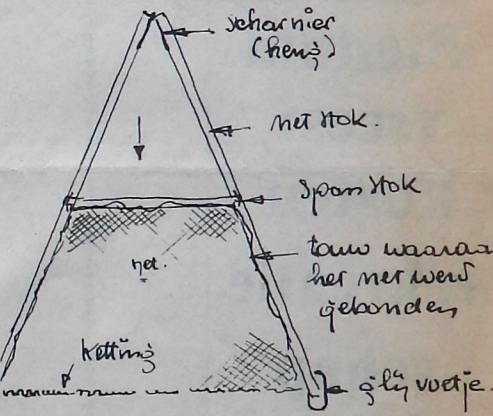 scharnier
(heng)
net stok.
Span stok
touw waaraa
het net werd
gebonden
net.
Ketting
glij voetje.